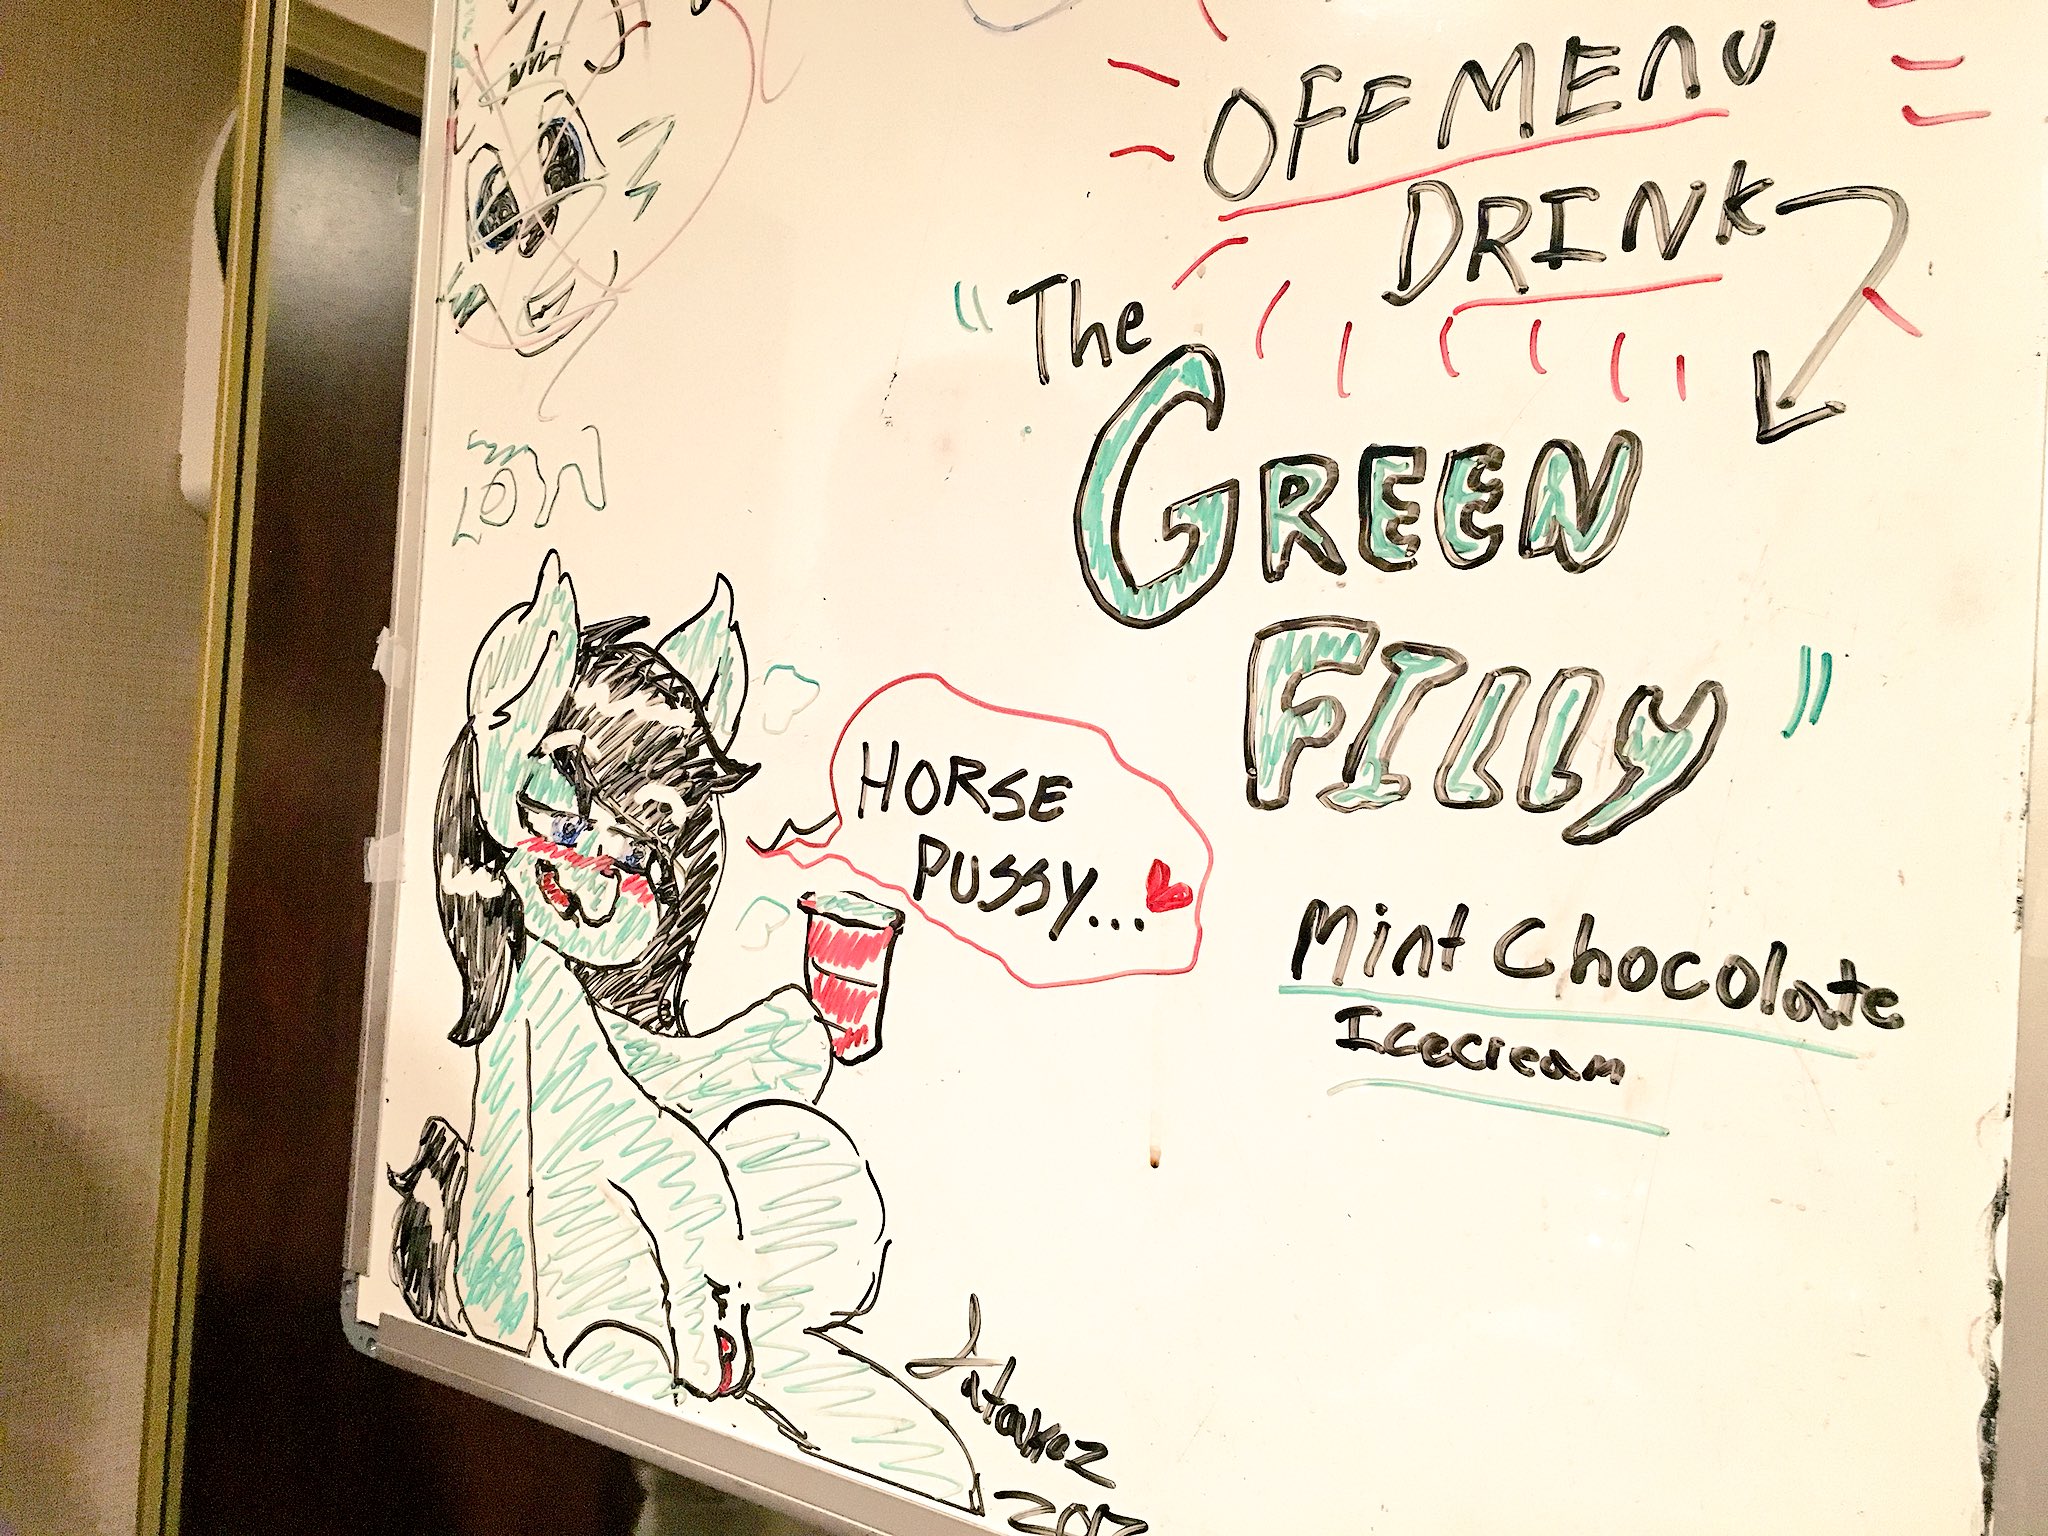 OFF MENU
DRINK
"The
GREEN
FILLY"
HORSE
PUSSY...
Mint Chocolate
Icecream
2017